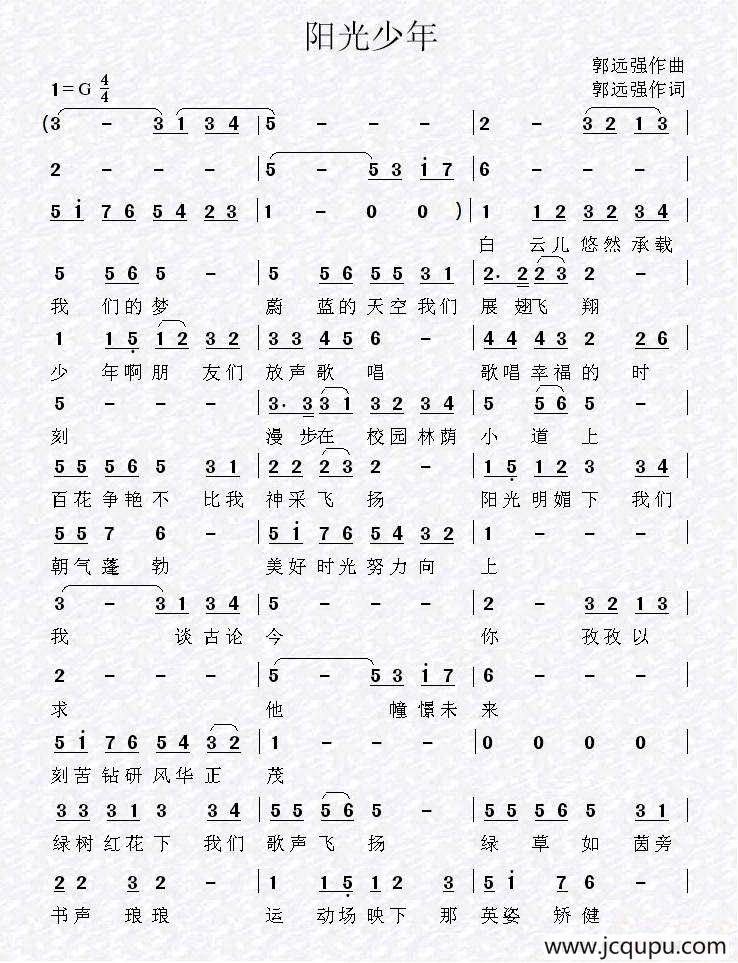 阳光少年
郭远强作曲
1=G 4/4
郭远强作词
(3 - 3 1 3 4 | 5 - - - | 2 - 3 2 1 3 |
2 - - - | 5 - 5 3 i 7 | 6 - - - |
5 i 7 6 5 4 2 3 | 1 - 0 0 ) | 1 1 2 3 2 3 4 |
白 云儿悠然承载
5 5 6 5 - | 5 5 6 5 5 3 1 | 2· 2 2 3 2 - |
我 们的梦 蔚 蓝的天空我们 展 翅飞 翔
1 1 5 1 2 3 2 | 3 3 4 5 6 - | 4 4 4 3 2 2 6 |
少 年啊朋 友们 放声歌 唱 歌唱幸福的 时
5 - - - | 3· 3 3 1 3 2 3 4 | 5 5 6 5 - |
刻 漫 步在 校园林荫 小 道 上
5 5 5 6 5 3 1 | 2 2 2 3 2 - | 1 5 1 2 3 3 4 |
百花争艳不 比我 神采飞 扬 阳光明媚下 我们
5 5 7 6 - | 5 i 7 6 5 4 3 2 | 1 - - - |
朝气蓬 勃 美好时光努力向 上
3 - 3 1 3 4 | 5 - - - | 2 - 3 2 1 3 |
我 谈古论 今 你 孜孜以
2 - - - | 5 - 5 3 i 7 | 6 - - - |
求 他 幢憬未 来
5 i 7 6 5 4 3 2 | 1 - - - | 0 0 0 0 |
刻苦钻研风华正 茂
3 3 3 1 3 3 4 | 5 5 5 6 5 - | 5 5 5 6 5 3 1 |
绿树红花下 我们 歌声飞 扬 绿 草 如 茵旁
2 2 3 2 - | 1 1 5 1 2 3 | 5 i 7 6 - |
书声 琅琅 运 动场映下 那 英姿 矫健
www.jcqupu.com